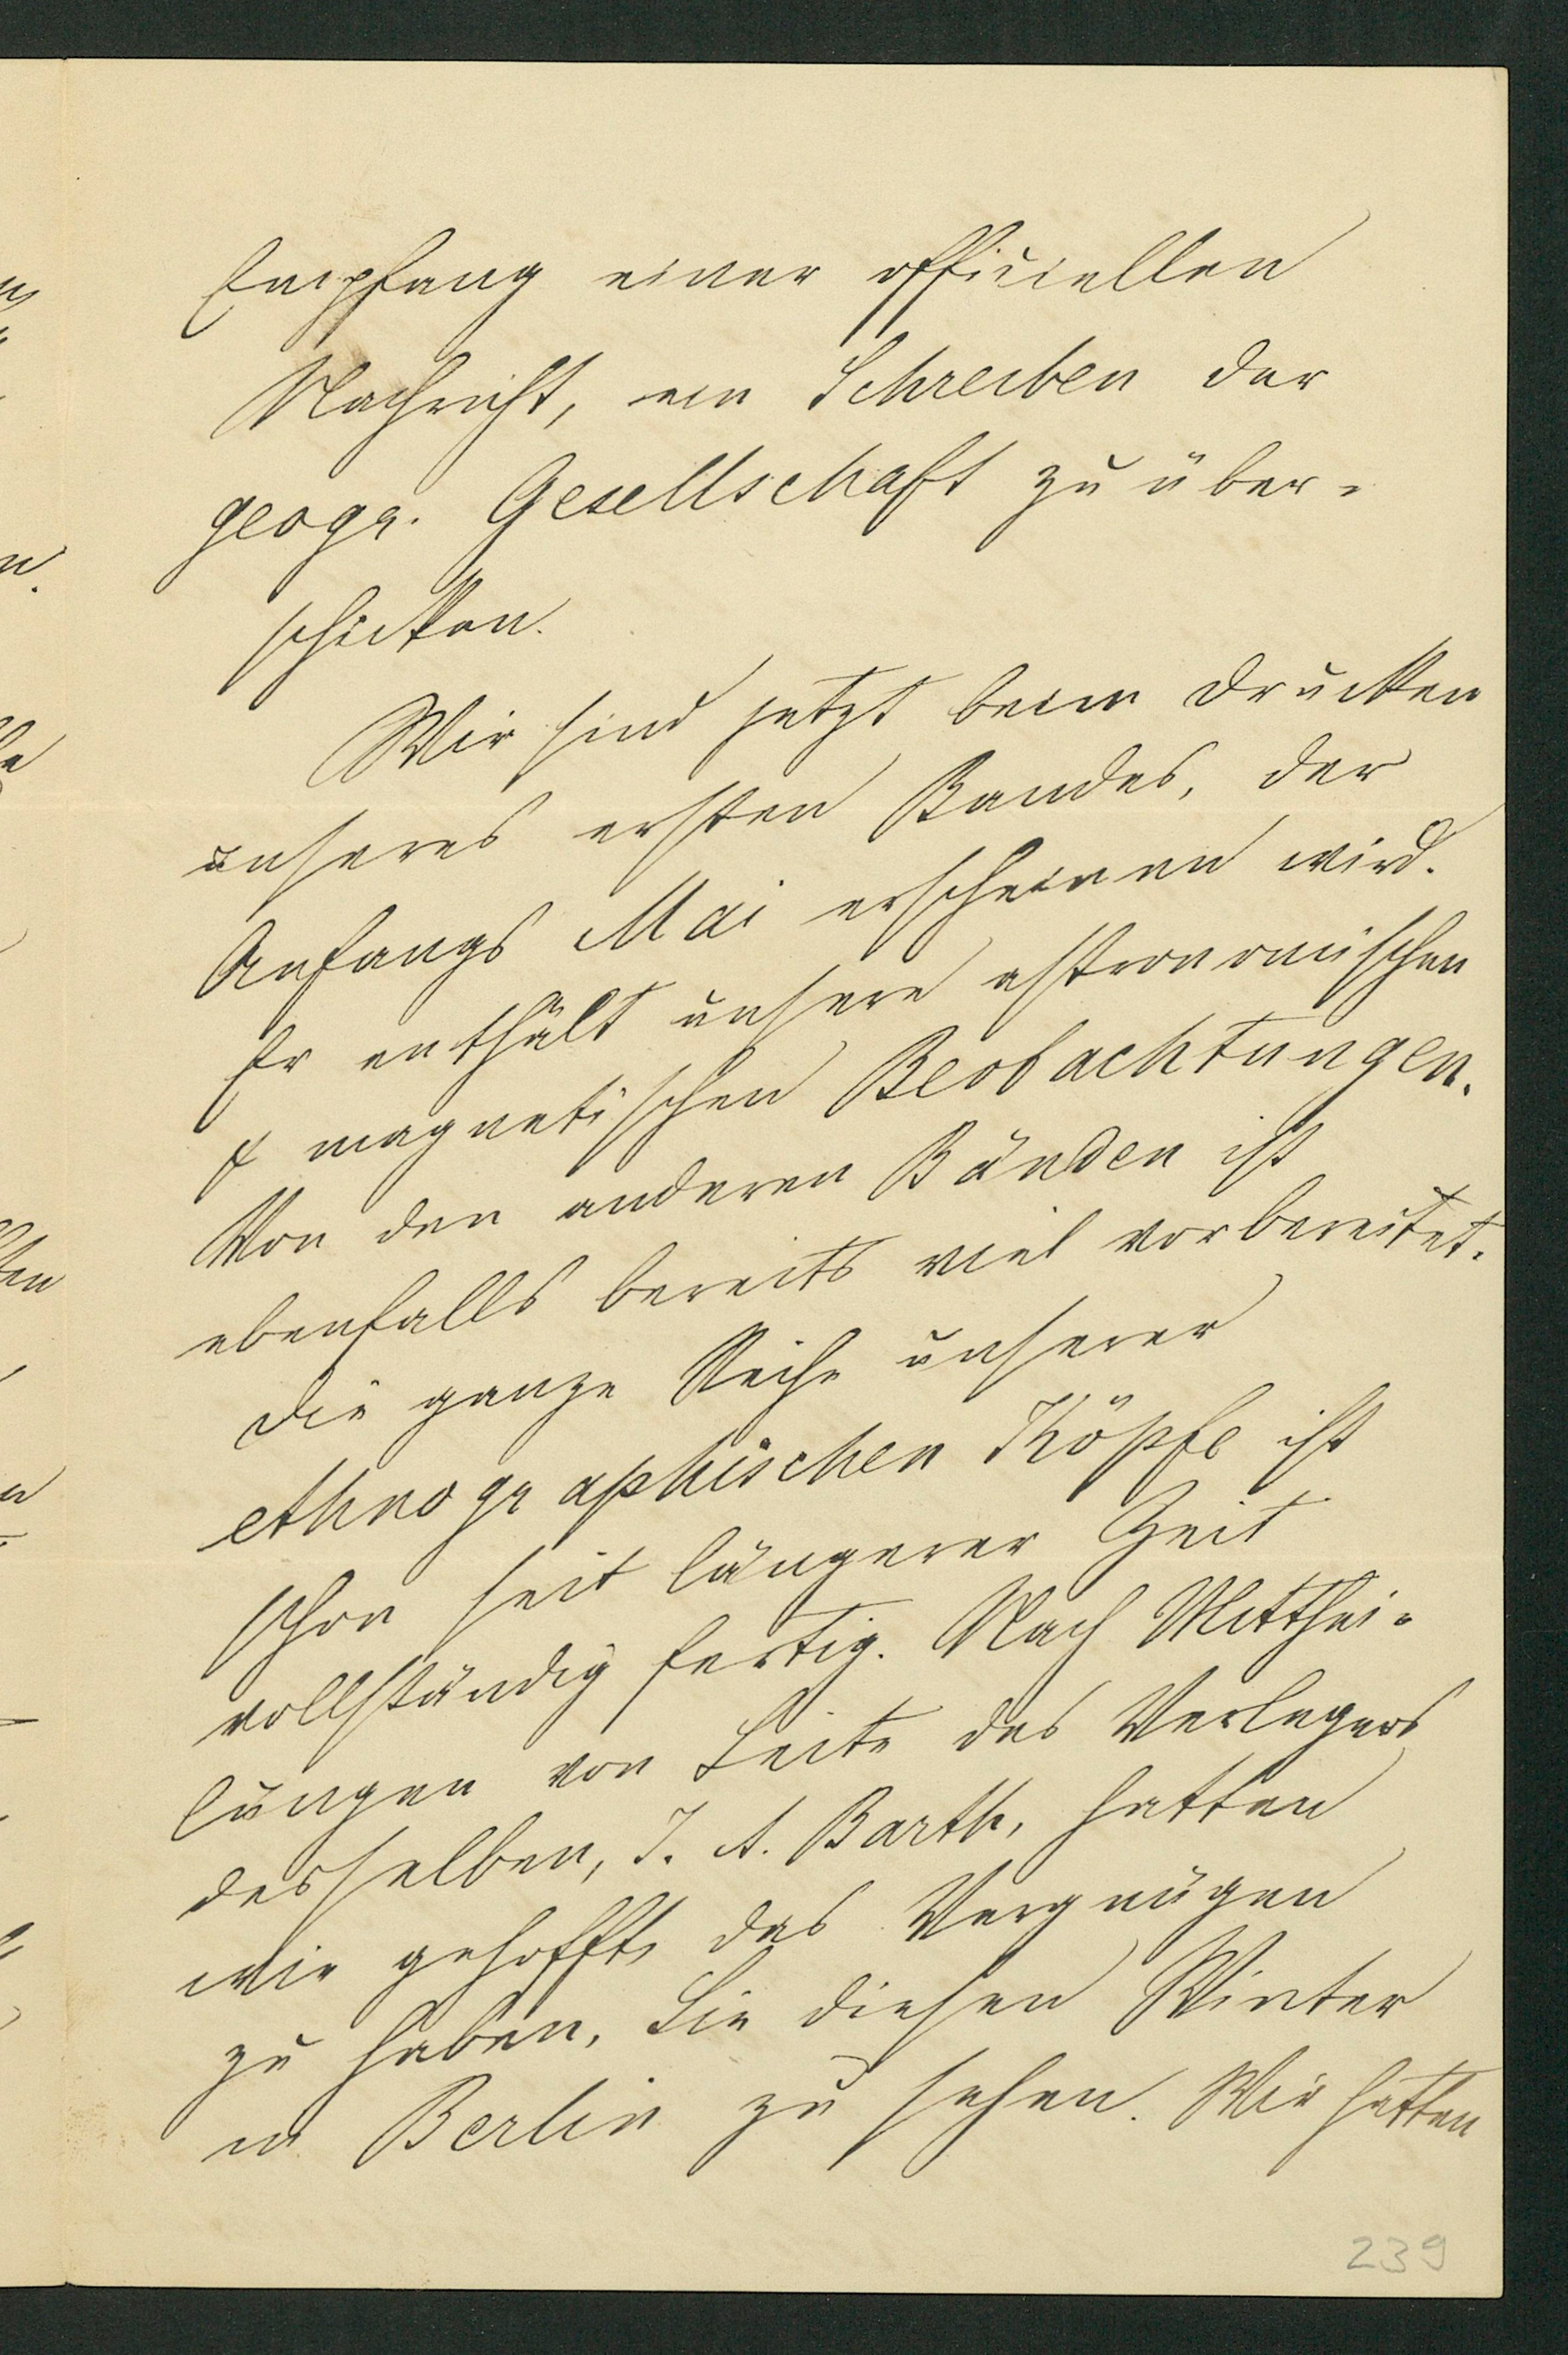 Empfang einer officiellen
Nachricht, ein Schreiben der
geogr. Gesellschaft zu über-
schicken.
Wir sind jetzt beim Drucken
unseres ersten Bandes, der
Anfangs Mai erscheinen wird.
Er enthält unsere astronomischen
& magnetischen Beobachtungen.
Von den anderen Bänden ist
ebenfalls bereits viel vorbereitet.
Die ganze Reihe unserer
ethnographischen Köpfe ist
schon seit längerer Zeit
vollständig fertig. Nach Mitthei-
lungen von Seite des Verlegers
desselben, J. A. Barth, hatten
wir gehofft, das Vergnügen
zu haben, Sie diesen Winter
in Berlin zu sehen. Wir hatten
239